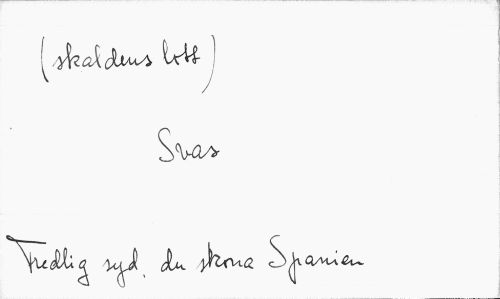 (skaldens lott)
Svas
Fredlig syd, du sköna Spanien